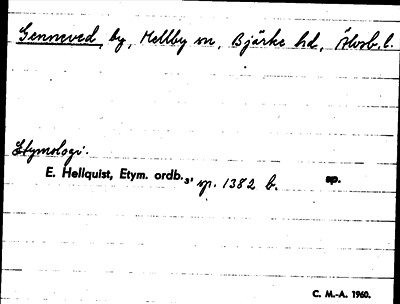 Genneved, by, Mellby sn, Bjärke hd, Älvsb. l.
Etymologi.
E. Hellquist, Etym. ordb.3, sp. 1382 b. sp.
C. M.-A. 1960.